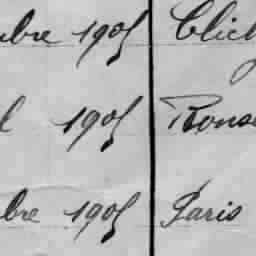 bre 1905 Clich
l 1905 Rons
bre 1905 Paris